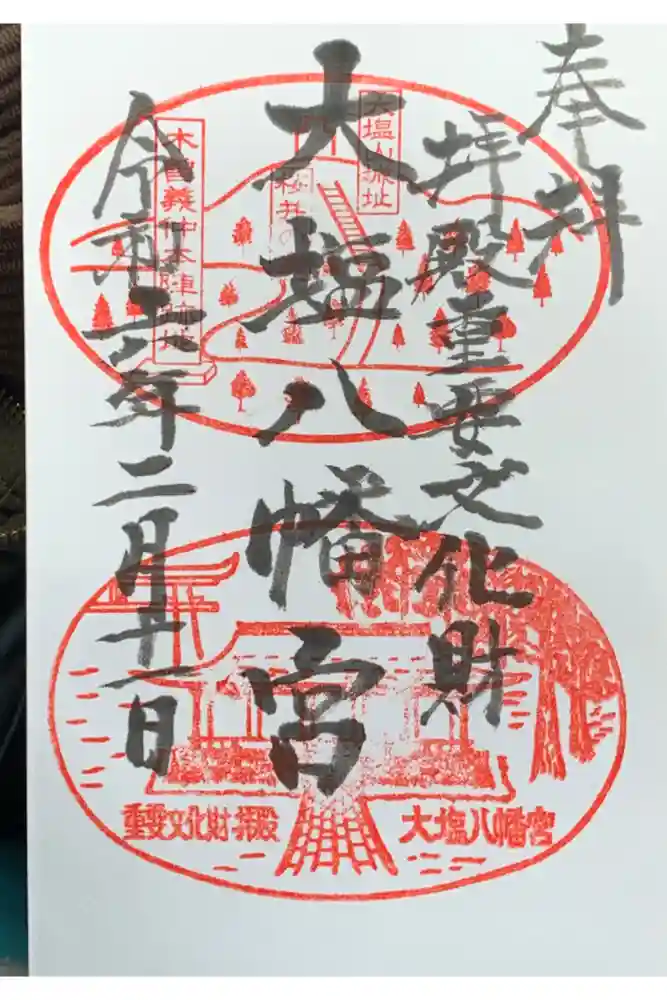 奉拝
拝殿重要文化財
大塩八幡宮
令和六年二月廿一日
大塩山城址
桜井の
木曽義仲本陣跡地
重要文化財拝殿
大塩八幡宮